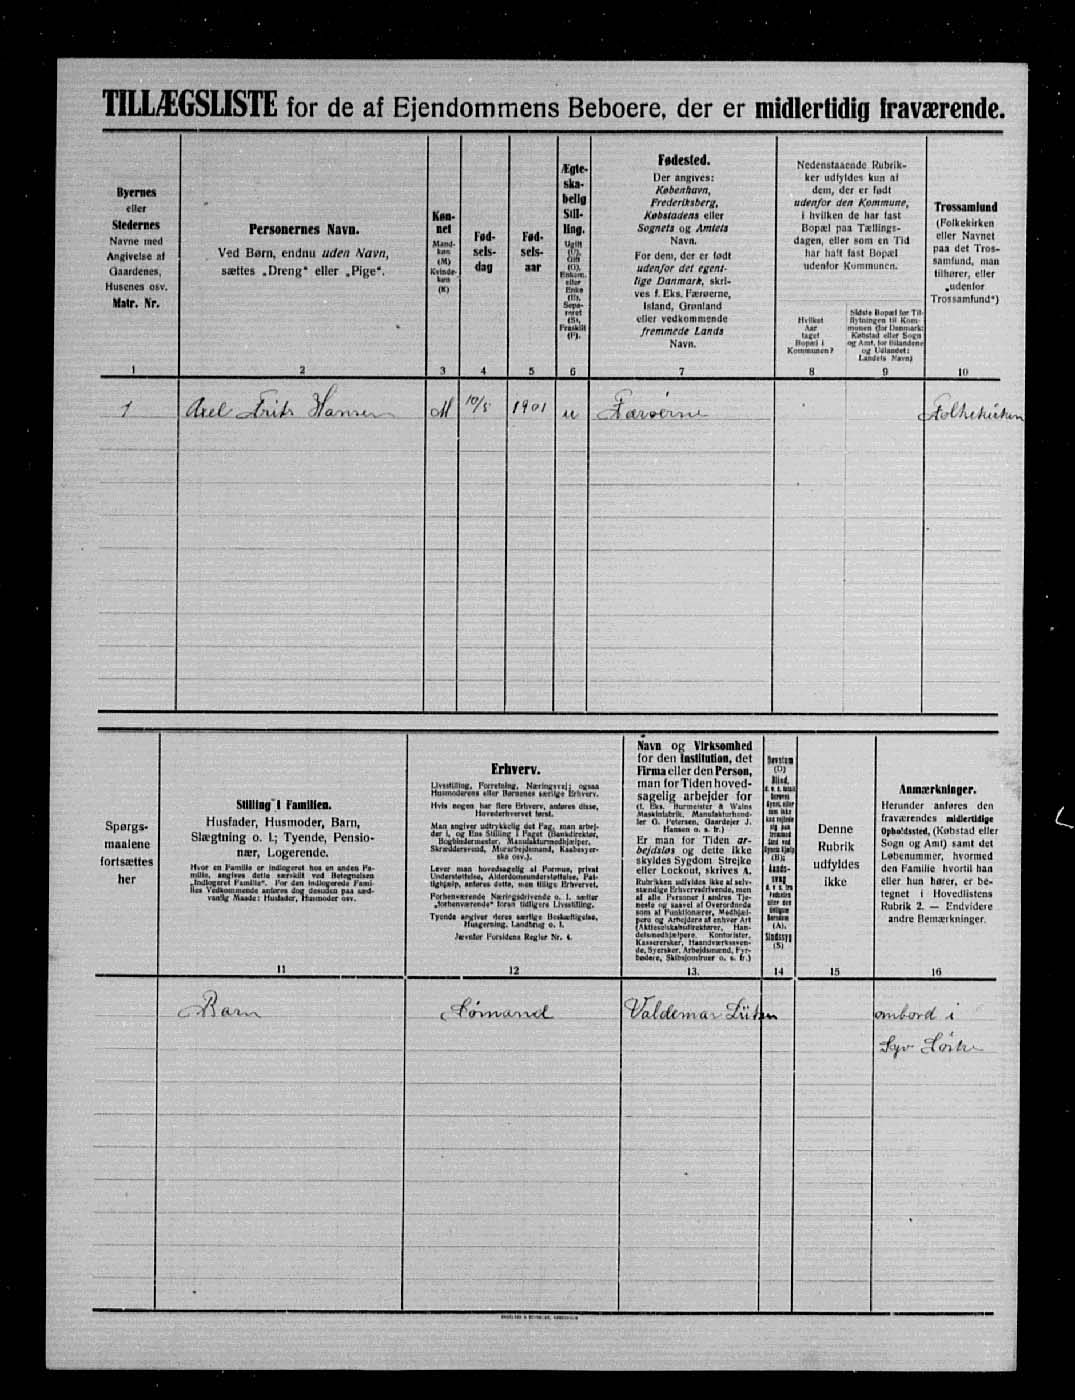 TILLÆGSLISTE for de af Ejendommens Beboere, der er midlertidig fraværende.
Byernes
eller
Stedernes
Navne med
Angivelse af
Gaardenes,
Husenes osv.
Matr. Nr.
Personernes Navn.
Ved Børn, endnu uden Navn,
sættes „Dreng“ eller „Pige“.
Køn-
net
Mand-
køn
(M)
Kvinde-
køn
(K)
Fød-
sels-
dag
Fød-
sels-
aar
Ægte-
ska-
belig
Stil-
ling.
Ugift
(U),
Gift
(G),
Enkem.
eller
Enke
(E),
Sepa-
reret
(S),
Fraskilt
(F).
Fødested.
Der angives:
København,
Frederiksberg,
Købstadens eller
Sognets og Amtets
Navn.
For dem, der er født
udenfor det egent-
lige Danmark, skri-
ves f. Eks. Færøerne,
Island, Grønland
eller vedkommende
fremmede Lands
Navn.
Nedenstaaende Rubrik-
ker udfyldes kun af
dem, der er født
udenfor den Kommune,
i hvilken de har fast
Bopæl paa Tællings-
dagen, eller som en Tid
har haft fast Bopæl
udenfor Kommunen.
Hvilket
Aar
taget
Bopæl i
Kommunen?
Sidste Bopæl før Til-
flytningen til Kom-
munen (for Danmark:
Købstad eller Sogn
og Amt, for Bilandene
og Udlandet:
Landets Navn)
Trossamfund
(Folkekirken
eller Navnet
paa det Tros-
samfund, man
tilhører, eller
„udenfor
Trossamfund“)
1 2 3 4 5 6 7 8 9 10
1 Axel Frits Hansen M 10/5 1901 u Færøerne Folkekirken
Spørgs-
maalene
fortsættes
her
Stilling i Familien.
Husfader, Husmoder, Barn,
Slægtning o. l.; Tyende, Pensio-
nær, Logerende.
Hvor en Familie er indlogeret hos en anden Fa-
milie, angives dette særskilt ved Betegnelsen
„Indlogeret Familie“. For den indlogerede Fami-
lies Vedkommende anføres dog desuden paa sæd-
vanlig Maade: Husfader, Husmoder osv.
Erhverv.
Livsstilling, Forretning, Næringsvej; ogsaa
Husmoderens eller Børnenes særlige Erhverv.
Hvis nogen har flere Erhverv, anføres disse,
Hovederhvervet først.
Man angiver udtrykkelig det Fag, man arbej-
der i, og Ens Stilling i Faget (Bankdirektør,
Bogbindermester, Manufakturmedhjælper,
Skræddersvend, Murarbejdsmand, Kaabesyer-
ske osv.).
Lever man hovedsagelig af Formue, privat
Understøttelse, Alderdomsunderstøttelse, Fat-
tighjælp, anføres dette, men tillige Erhvervet.
Forhenværende Næringsdrivende o. l. sætter
„forhenværende“ foran tidligere Livsstilling.
Tyende angiver deres særlige Beskæftigelse,
Husgerning, Landbrug o. l.
Jævnfør Forsidens Regler Nr. 4.
Navn og Virksomhed
for den Institution, det
Firma eller den Person,
man for Tiden hoved-
sagelig arbejder for
(f. Eks. Burmeister & Wains
Maskinfabrik, Manufakturhand-
ler G. Petersen, Gaardejer J.
Hansen o. s. fr.)
Er man for Tiden ar-
bejdsløs og dette ikke
skyldes Sygdom Strejke
eller Lockout, skrives A.
Rubrikken udfyldes ikke af selv-
stændige Erhvervsdrivende, men
af alle Personer i andres Tje-
neste og saavel af Overordnede
som af Funktionærer, Medhjæl-
pere og Arbejdere af enhver Art
(Aktieselskabsdirektører, Han-
delsmedhjælpere, Kontorister,
Kassererske, Haandværkssven-
de, Syersker, Arbejdsmænd, Fyr-
bødere, Skibsjomfruer o. s. fr.)
Døvstum
(D)
Blind,
(B);
Aands-
svag
(A),
Sindssyg
(S)
Denne
Rubrik
udfyldes
ikke
Anmærkninger.
Herunder anføres den
fraværendes midlertidige
Opholdssted, (Købstad eller
Sogn og Amt) samt det
Løbenummer, hvormed
den Familie hvortil han
eller hun hører, er be-
tegnet i Hovedlistens
Rubrik 2. — Endvidere
andre Bemærkninger.
11 12 13. 14 15 16
Barn Sømand Valdemar Lützen ombord i